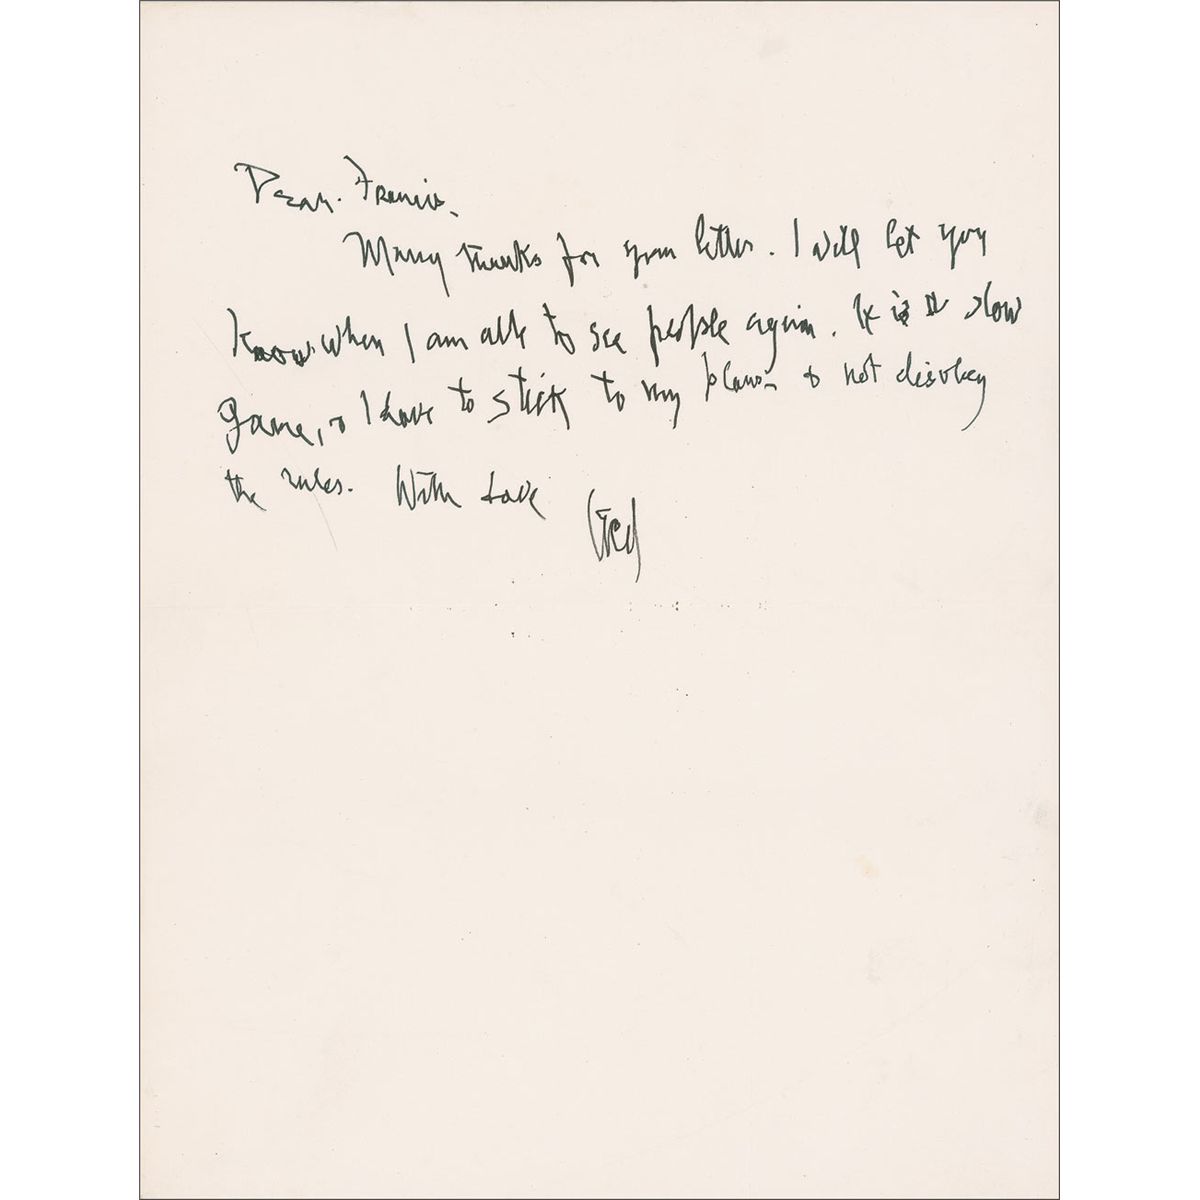 Dear Francis.
Many thanks for your letter. I will let you
know when I am able to see people again. It is a slow
game, & I have to stick to my plans & not disobey
the rules. With Love